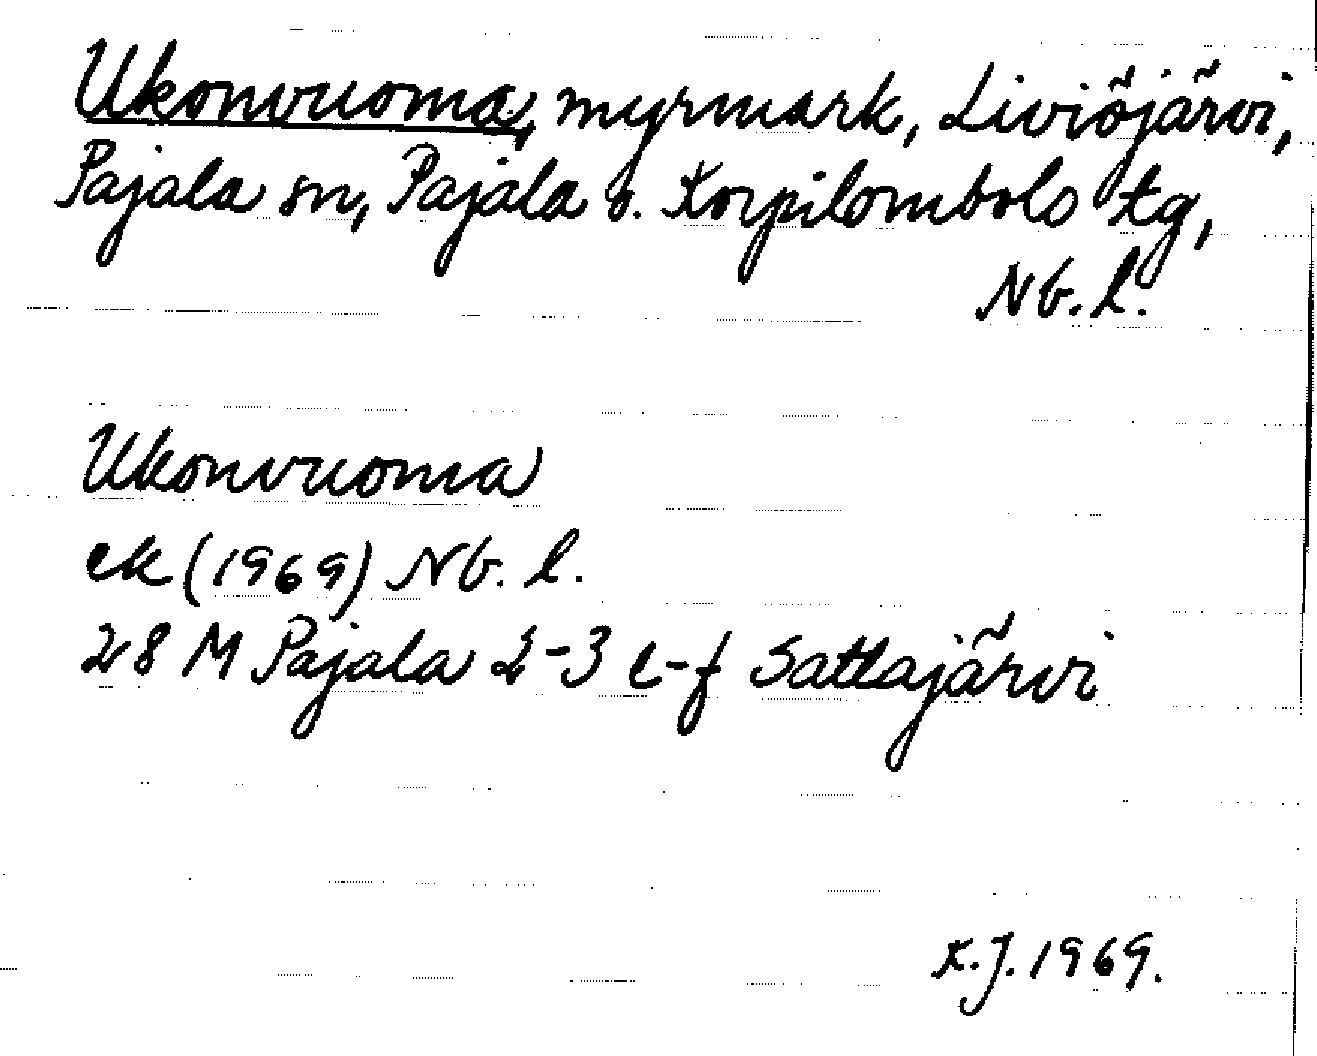 Ukonvuoma, myrmark, Liviöjärvi,
Pajala sn, Pajala o. Korpilombolo tg,
Nb. l.
Ukonvuoma
ek (1969) Nb. l.
28 M Pajala 2-3 e-f Sattajärvi
K.J. 1969.